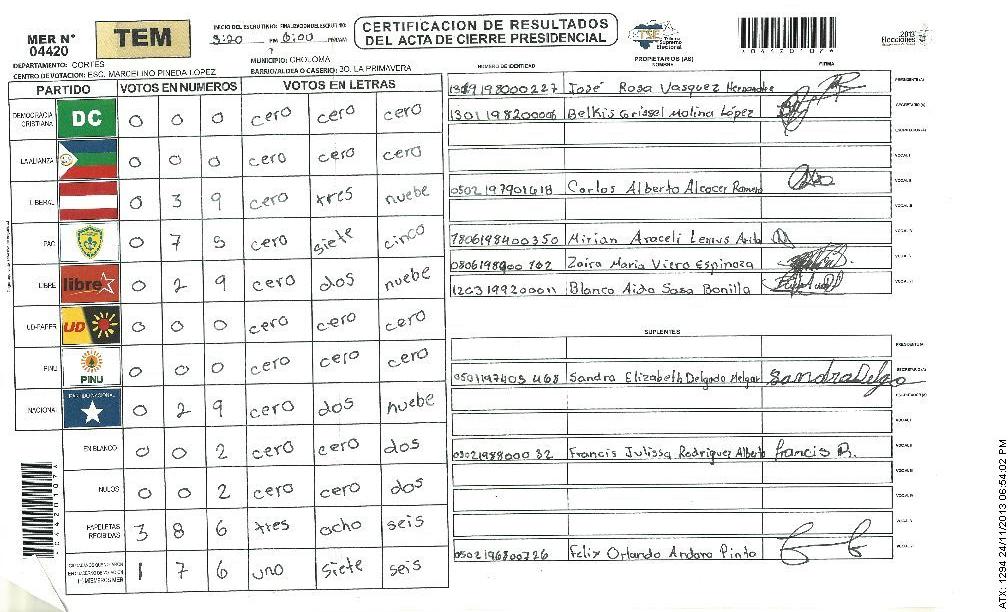 MER N° 04420
TEM
INICIO DEL ESCRUTINIO: FINALIZACION DEL ESCRUTINIO:
3:20 PM 6:00 PM/AM
CERTIFICACION DE RESULTADOS
DEL ACTA DE CIERRE PRESIDENCIAL
TSE
Tribunal Supremo Electoral
2013
Elecciones
DEPARTAMENTO: CORTES
MUNICIPIO: CHOLOMA
CENTRO DE VOTACION: ESC. MARCELINO PINEDA LOPEZ
BARRIO/ALDEA O CASERIO: BO. LA PRIMAVERA
PARTIDO VOTOS EN NUMEROS VOTOS EN LETRAS
DEMOCRACIA CRISTIANA DC 0 0 0 cero cero cero
LA ALIANZA 0 0 0 cero cero cero
LIBERAL 0 3 9 cero tres nuebe
PAC 0 7 5 cero siete cinco
LIBRE libre 0 2 9 cero dos nuebe
UD-FAPER UD 0 0 0 cero cero cero
PINU PINU 0 0 0 cero cero cero
NACIONAL PARTIDO NACIONAL 0 2 9 cero dos nuebe
EN BLANCO 0 0 2 cero cero dos
NULOS 0 0 2 cero cero dos
PAPELETAS RECIBIDAS 3 8 6 tres ocho seis
1 7 6 uno siete seis
PROPIETARIOS (AS)
NUMERO DE IDENTIDAD NOMBRE FIRMA
José Rosa Vasquez Hernandez PRESIDENTE(A)
1301198200006 Belkis Grissel Molina López SECRETARIO(A)
ESCRUTADOR(A)
VOCAL I
0502197901618 Carlos Alberto Alcocer Romero VOCAL II
VOCAL III
Mirian Araceli Lemus VOCAL IV
Zoira Maria Viera Espinoza VOCAL V
Blanca Aida Sosa Bonilla VOCAL VI
SUPLENTES
PRESIDENTE(A)
Sandra Elizabeth Delgado Melgar Sandra Delgo SECRETARIO(A)
ESCRUTADOR(A)
VOCAL I
Francis Julissa Rodriguez Alberto francis R. VOCAL II
VOCAL III
VOCAL IV
VOCAL V
0502196800726 Felix Orlando Andara Pinto
ATX: 1294 24/11/2013 06:54:02 PM